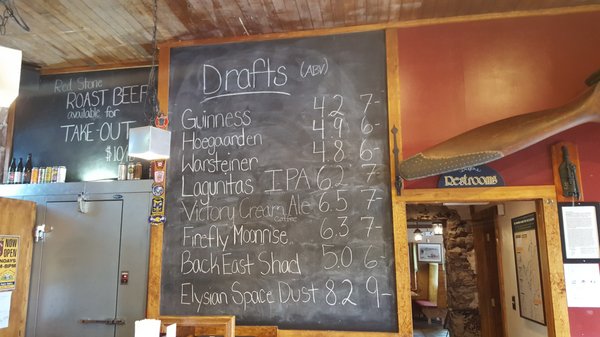 Red Stone
ROAST BEEF
available for
TAKE-OUT
Drafts (ABV)
Guinness 4.2 7-
Hoegaarden 4.9 6-
Warsteiner 4.8 6-
Lagunitas IPA 6.2 7-
Victory Cream Ale 6.5 7-
Firefly Moonrise 6.3 7-
Back East Shad 5.0 6-
Elysian Space Dust 8.2 9-
RESTROOMS
NOW
OPEN